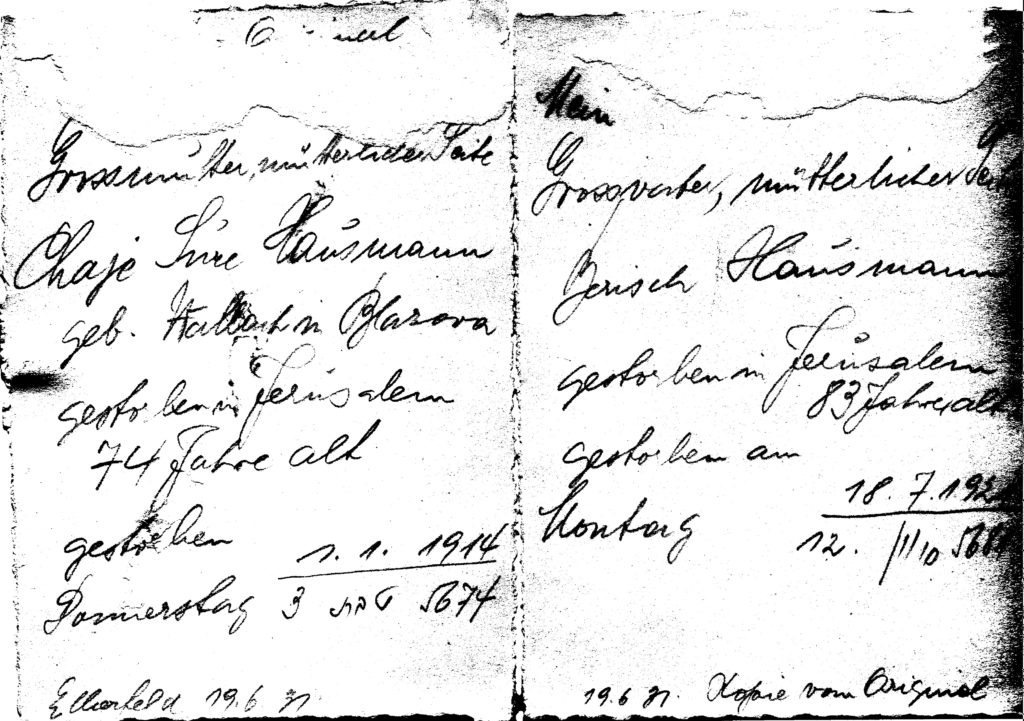 Grossmutter, mütterlicher Seite
Chaje Sure Hausmann
geb. Wallach in Blazova
gestorben in Jerusalem
74 Jahre alt
gestorben 1. 1. 1914
Donnerstag 3 טבת 5674
Elberfeld 19.6 31.
Mein
Grossvater, mütterlicher Seite
Berisch Hausmann
gestorben in Jerusalem
83 Jahre alt
gestorben am
18. 7. 1921
Montag 12. תמוז 5681
19.6 31. Kopie vom Original